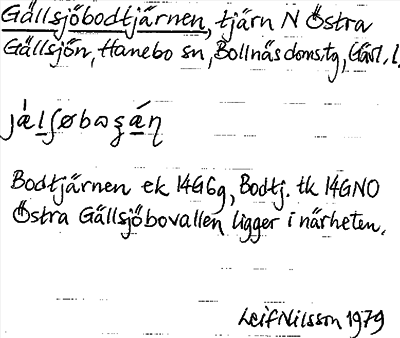 Gällsjöbodtjärnen, tjärn N Östra
Gällsjön, Hanebo sn, Bollnäs doms.tg, Gävl. l.
jǽlʃøbaʂǽɳ
Bodtjärnen ek 14G6g, Bodtj. tk 14GNO
Östra Gällsjöbovallen ligger i närheten.
Leif Nilsson 1979